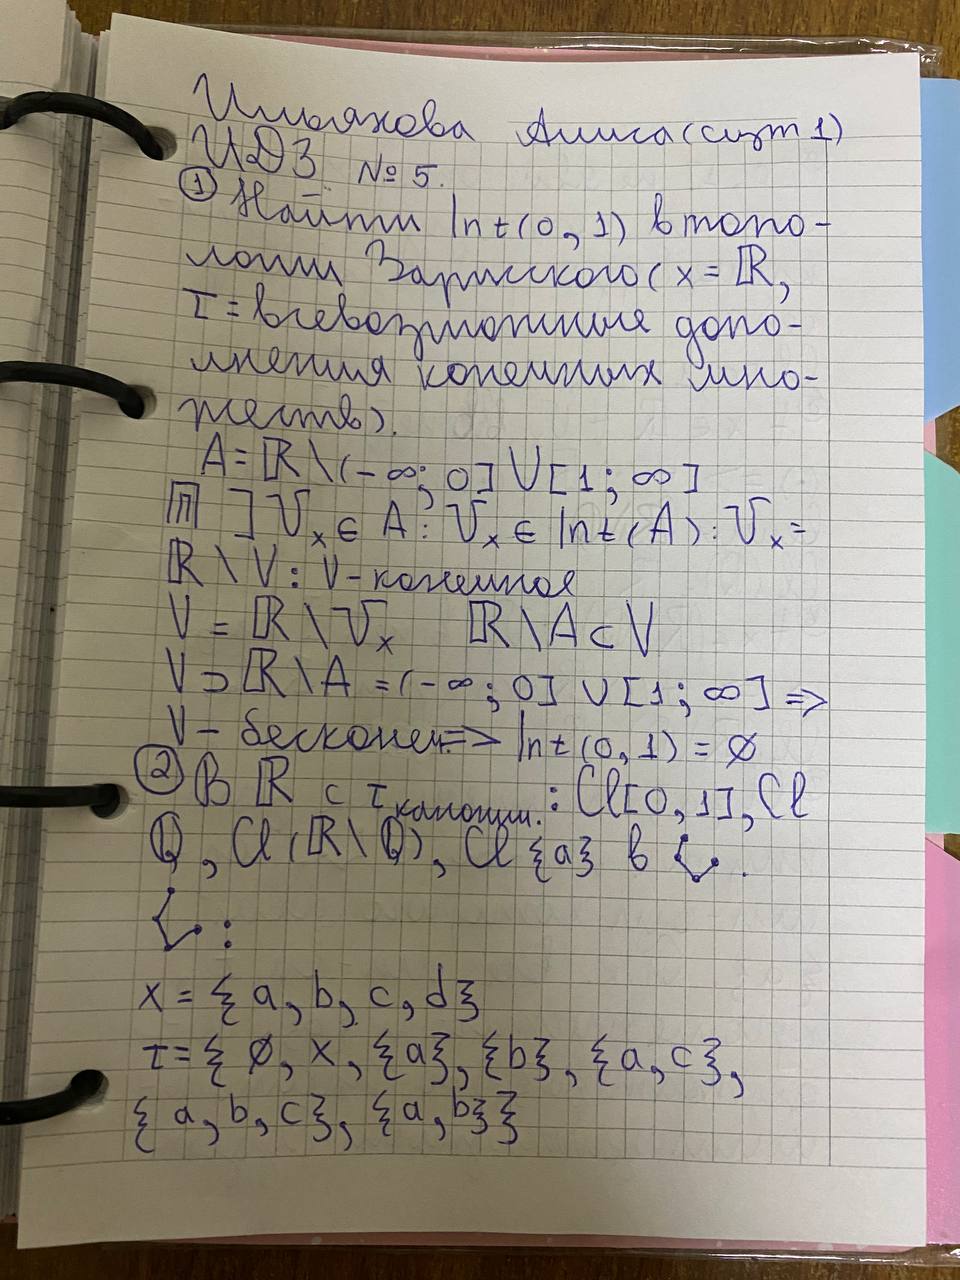 Ильякова Алиса (сцт 1)
ИДЗ № 5.
① Найти Int(0, 1) в топо-
логии Зарисского (x = ℝ,
τ = всевозможные допо-
лнения конечных мно-
жеств).
A = ℝ \ (-∞; 0] ∪ [1; ∞]
П ] U_x ∈ A : U_x ∈ Int(A) : U_x =
ℝ \ V : V - конечное
V = ℝ \ U_x ℝ \ A ⊂ V
V ⊃ ℝ \ A = (-∞; 0] ∪ [1; ∞] ⇒
V - бесконеч. ⇒ Int(0, 1) = ∅
② В ℝ с τ канонич. : Cl[0, 1], Cl
ℚ, Cl(ℝ \ ℚ), Cl {a} в
:
x = {a, b, c, d}
τ = {∅, x, {a}, {b}, {a, c},
{a, b, c}, {a, b}}